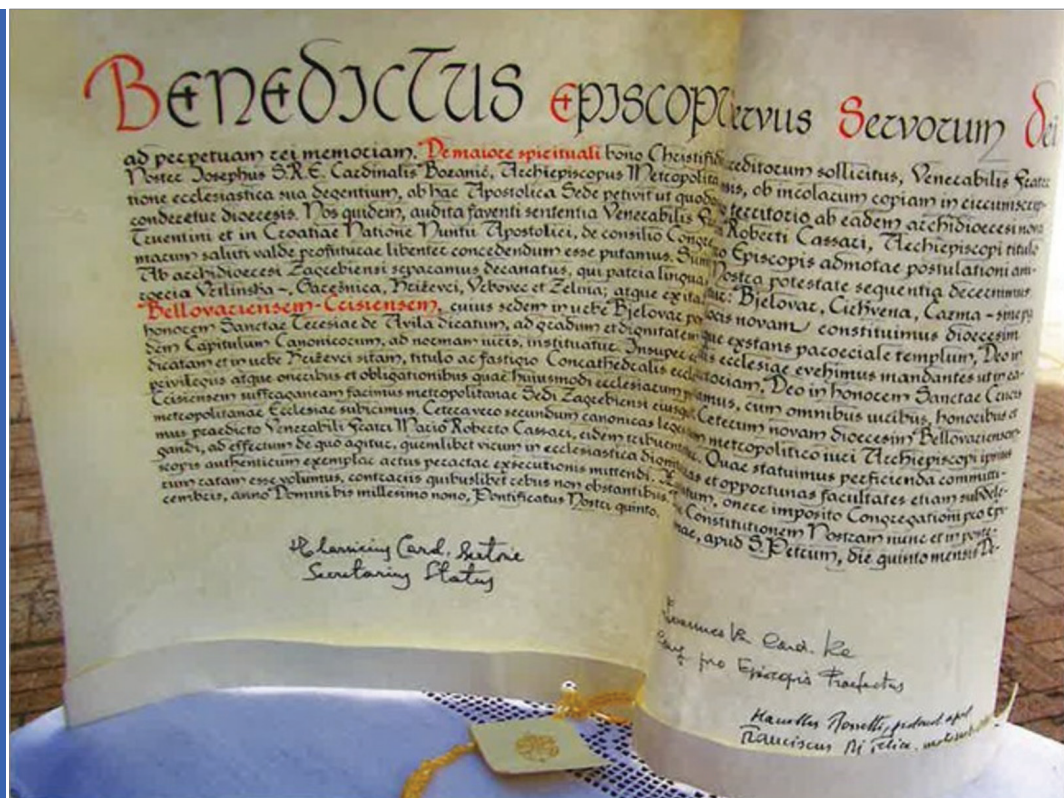 BENEDICTUS EPISCOP ervus Servorum Dei
ad perpetuam rei memoriam. De maiore spirituali bono Christifid creditorum sollicitus, Venerabilis Frater
Noster Iosephus S.R.E. Cardinalis Bozanić, Archiepiscopus Metropolita sis, ob incolarum copiam in circumscrip-
tione ecclesiastica sua degentium, ab hac Apostolica Sede petivit ut quod territorio ab eadem archidioecesi nova
conderetur dioecesis. Nos quidem, audita faventi sententia Venerabilis F Roberti Cassari, Archiepiscopi titulo
Truentini et in Croatiae Natione Nuntii Apostolici, de consilio Congre Episcopis admotae postulationi ani-
marum saluti valde profiturae libenter concedendum esse putamus. Sum Nostra potestate sequentia decernimus.
Ab archidioecesi Zagrebiensi separamus decanatus, qui patria lingua Bjelovar, Cirkvena, Cazma - sine pa
roecia Vrtlinska -, Garešnica, Križevci, Vrbovec et Zelina; atque ex ita locis novam constituimus dioecesim
Bellovariensem-Crisiensem, cuius sedem in urbe Bjelovar po que exstans paroeciale templum, Deo in
honorem Sanctae Teresiae de Avila dicatum, ad gradum et dignitatem lis ecclesiae evehimus mandantes ut in ea-
dem Capitulum Canonicorum, ad normam iuris, instituatur. Insuper Deo in honorem Sanctae Crucis
dicatam et in urbe Križevci sitam, titulo ac fastigio Concathedralis eccl amus, cum omnibus iuribus, honoribus et
privilegiis atque oneribus et obligationibus quae huiusmodi ecclesiarum Ceterum novam dioecesim Bellovariensem-
Crisiensem suffraganeam facimus metropolitanae Sedi Zagrebiensi eiusq metropolitico iuri Archiepiscopi ipsius
metropolitanae Ecclesiae subicimus. Cetera vero secundum canonicas leges Quae statuimus perficienda committi-
mus praedicto Venerabili Fratri Mario Roberto Cassari, eidem tribuente et opportunas facultates etiam subdele-
gandi, ad effectum de quo agitur, quemlibet virum in ecclesiastica digni tum, onere imposito Congregationi pro Epi-
scopis authenticum exemplar actus peractae exsecutionis mittendi. Constitutionem Nostram nunc et in poste-
rum ratam esse volumus, contrariis quibuslibet rebus non obstantibus. mae, apud S. Petrum, die quinto mensis De-
cembris, anno Domini bis millesimo nono, Pontificatus Nostri quinto.
Card.
Secretarius Status
Card. Re
pro Episcopis Praefectus